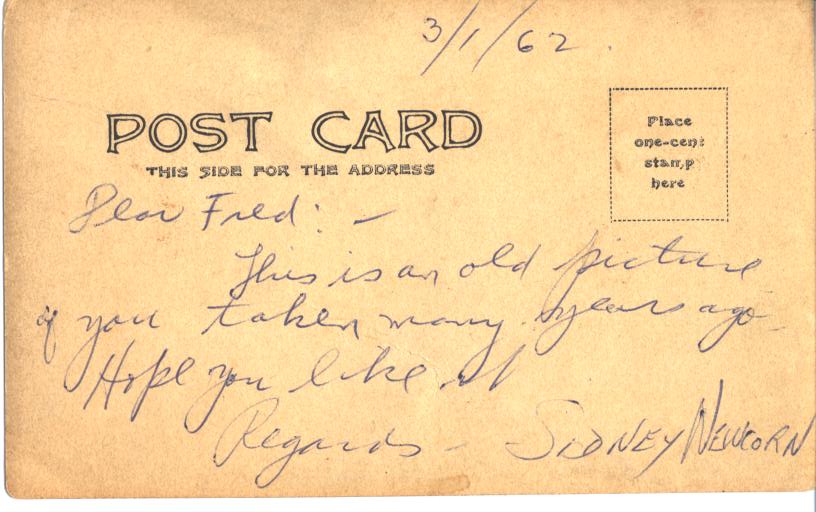 3/1/62.
POST CARD
THIS SIDE FOR THE ADDRESS
Place
one-cent
stamp
here
Dear Fred: -
This is an old picture
of you taken many years ago
Hope you like it
Regards - SIDNEY NEWCORN